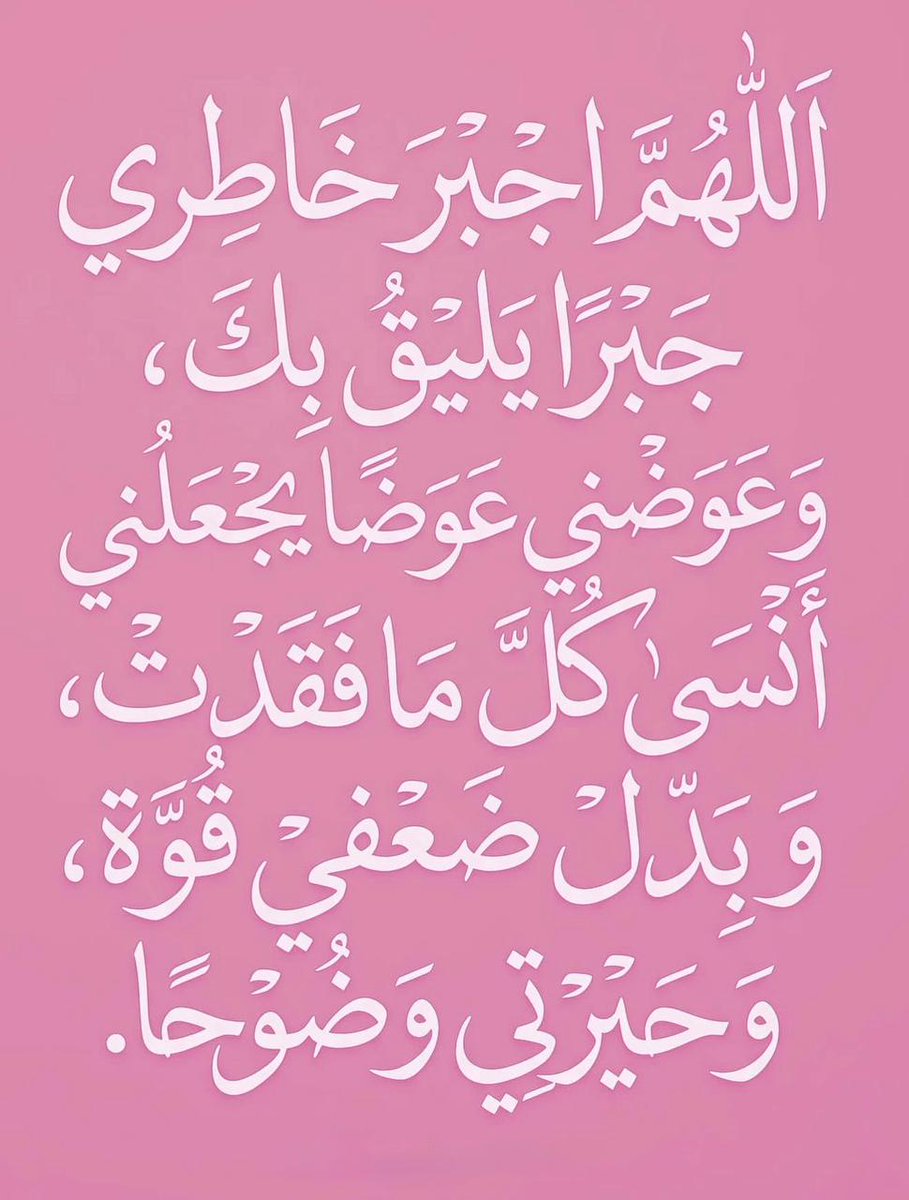 اَللّٰهُمَّ اجْبْرَ خَاطِري
جَبْرًا يَليْقُ بِكَ،
وَعَوَضْني عَوَضًا يجْعَلُني
أَنْسَىٰ كُلَّ مَا فَقَدْتْ،
وَ بَِدّلْ ضَعْفيْ قُوَّة،
وَحَيْرْتِي وَضُوْحًا.